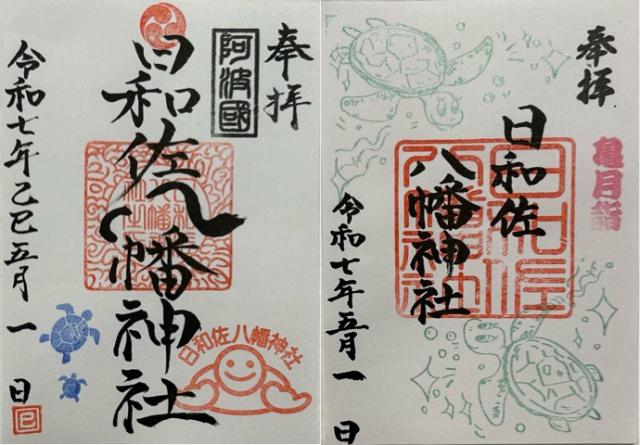 奉拝
阿波國
日和佐八幡神社
令和七年乙巳五月一日
日和佐八幡神社
巳
奉拝
亀月詣
日和佐
八幡神社
日和佐八幡神社
令和七年五月一日